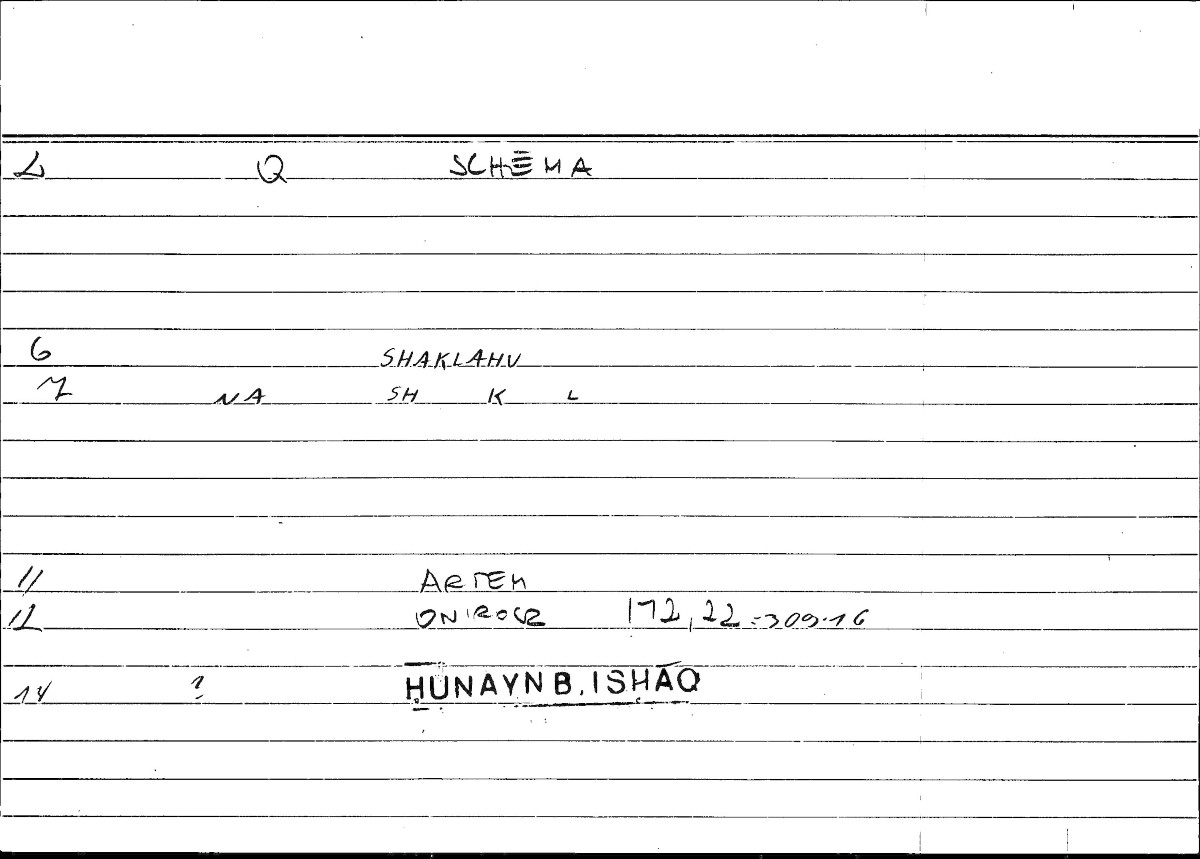 1 Q SCHĒMA
6 SHAKLAHU
7 NA SH K L
11 ARTEM
12 ONIROCR 172,22=309.16
14 ? ḤUNAYN B. ISḤĀQ